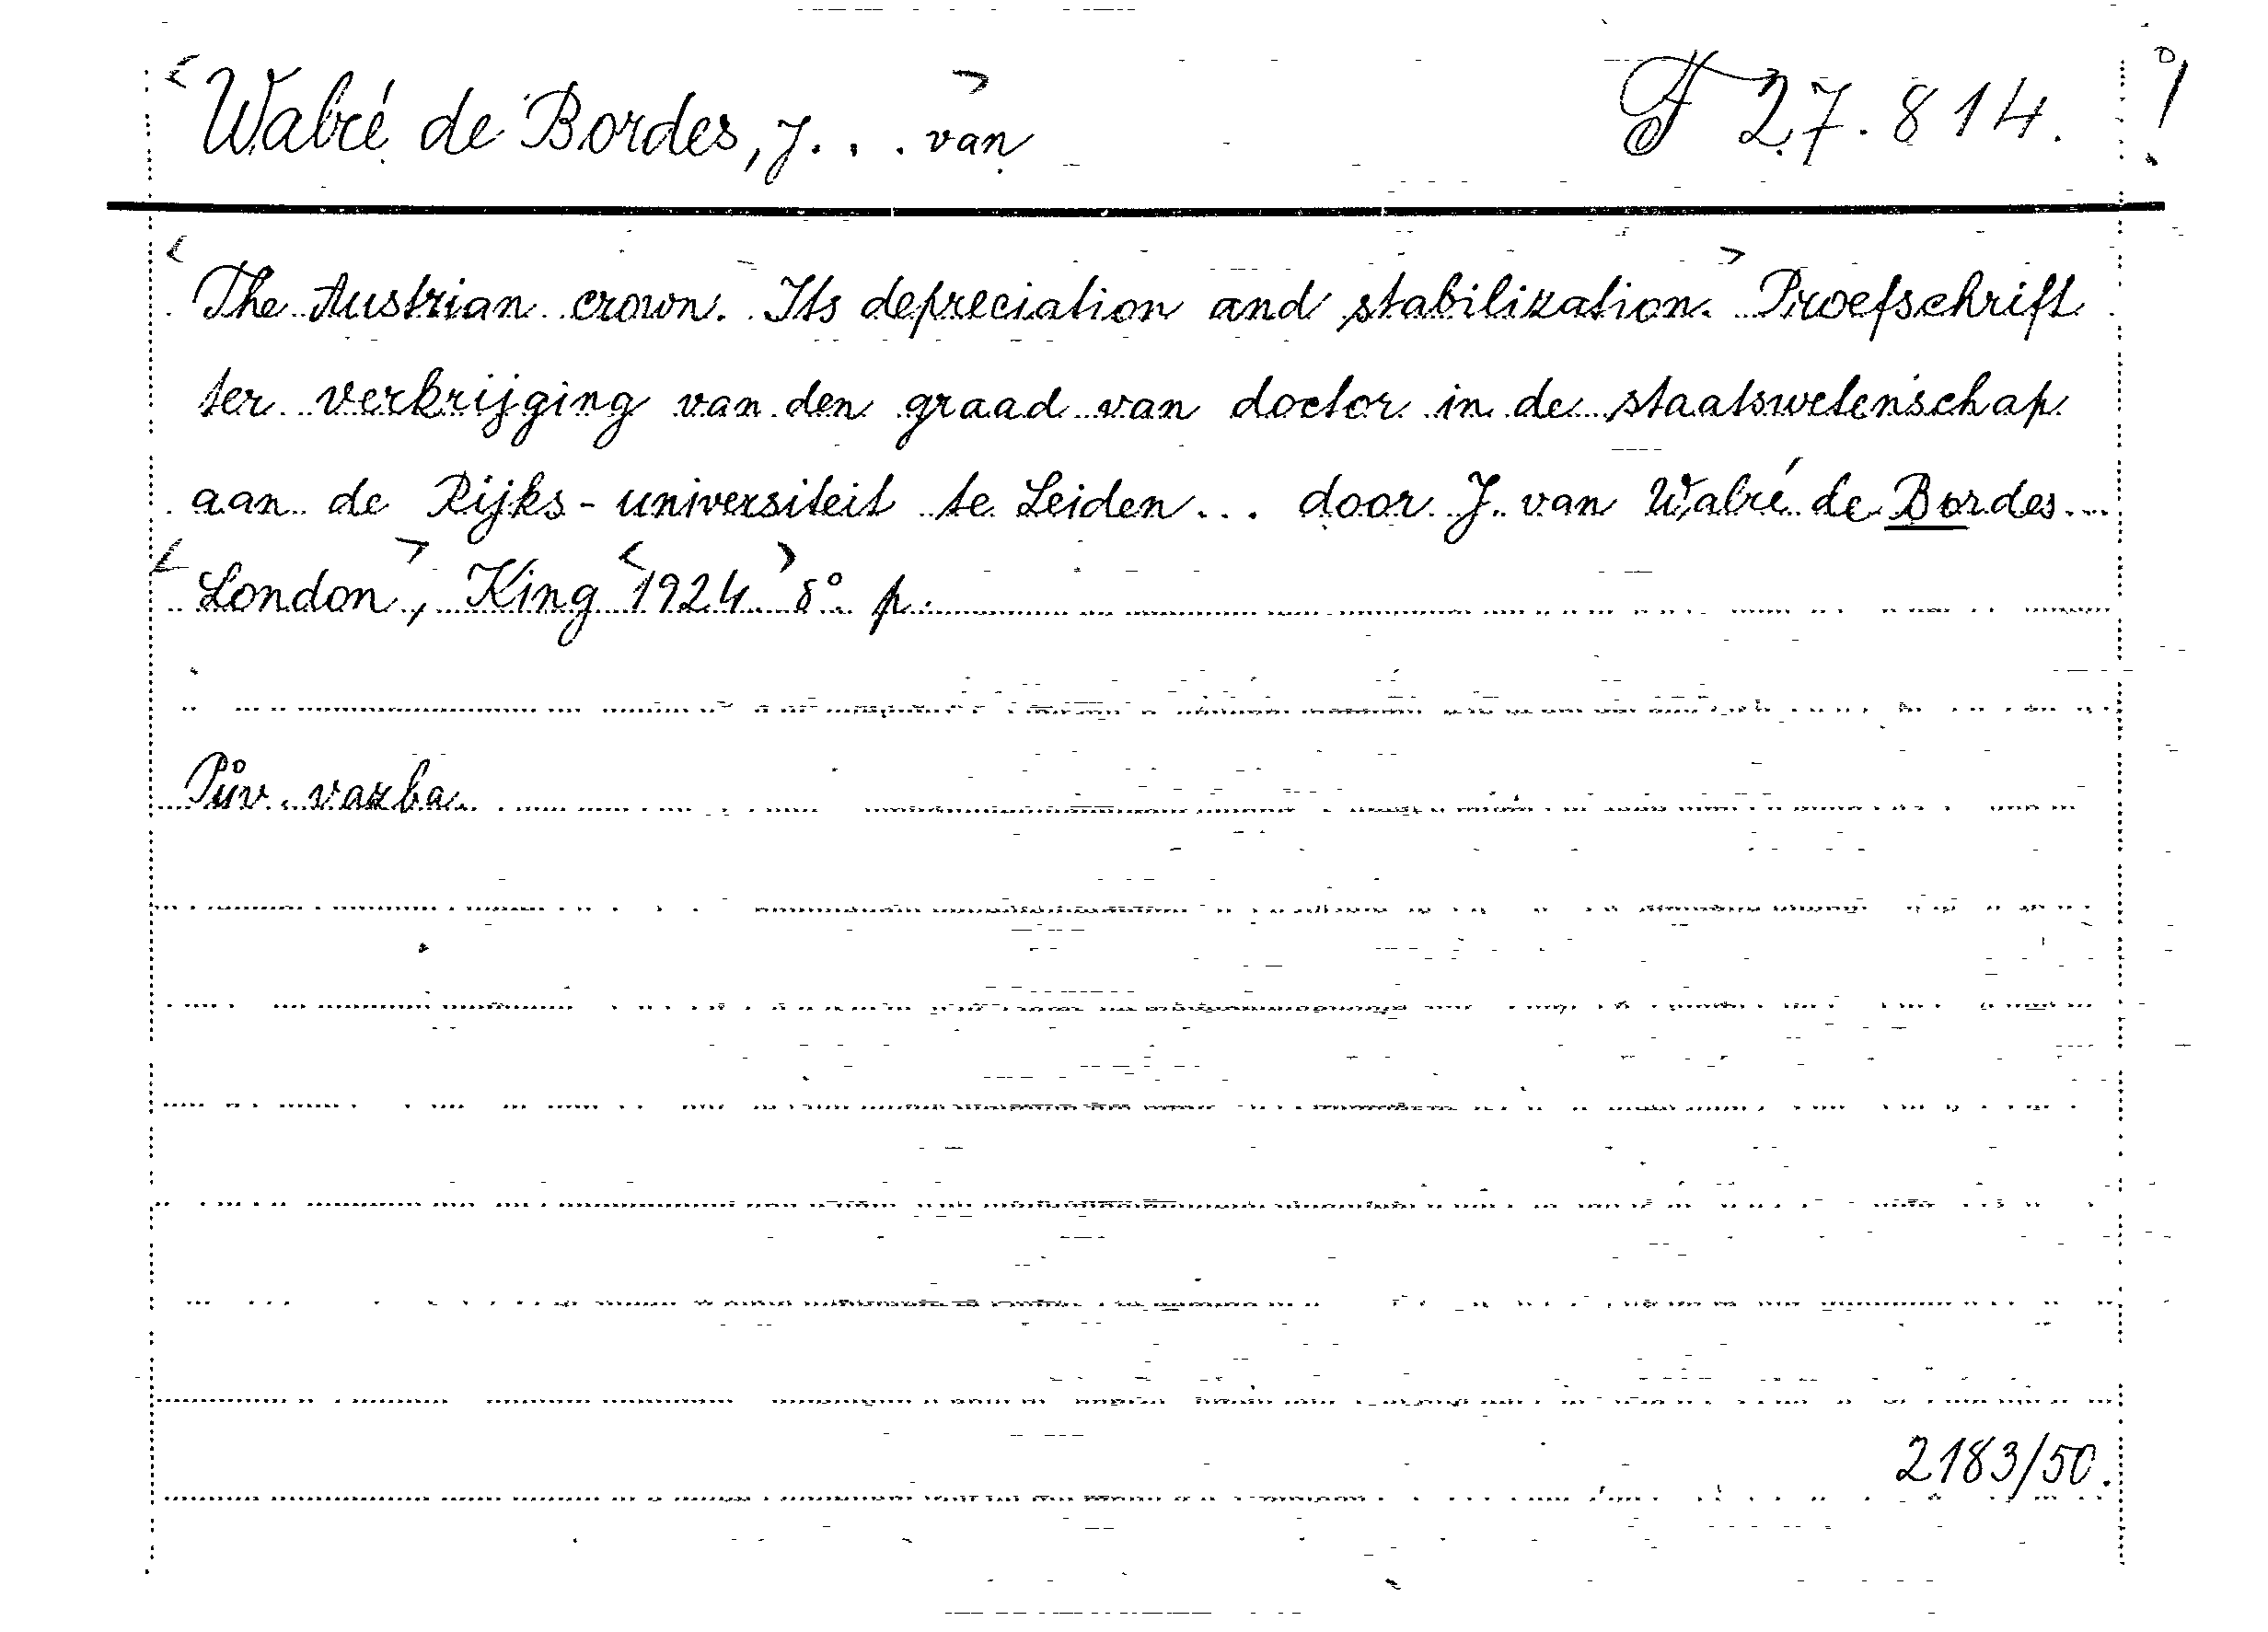 <Walré de Bordes, J... van> F 27.814.
<The Austrian crown. Its depreciation and stabilization.> Proefschrift
ter verkrijging van den graad van doctor in de staatswetenschap
aan de Rijks-universiteit te Leiden... door J. van Walré de Bordes...
<London>, King <1924.> 8° p.
Pův. vazba.
2183/50.